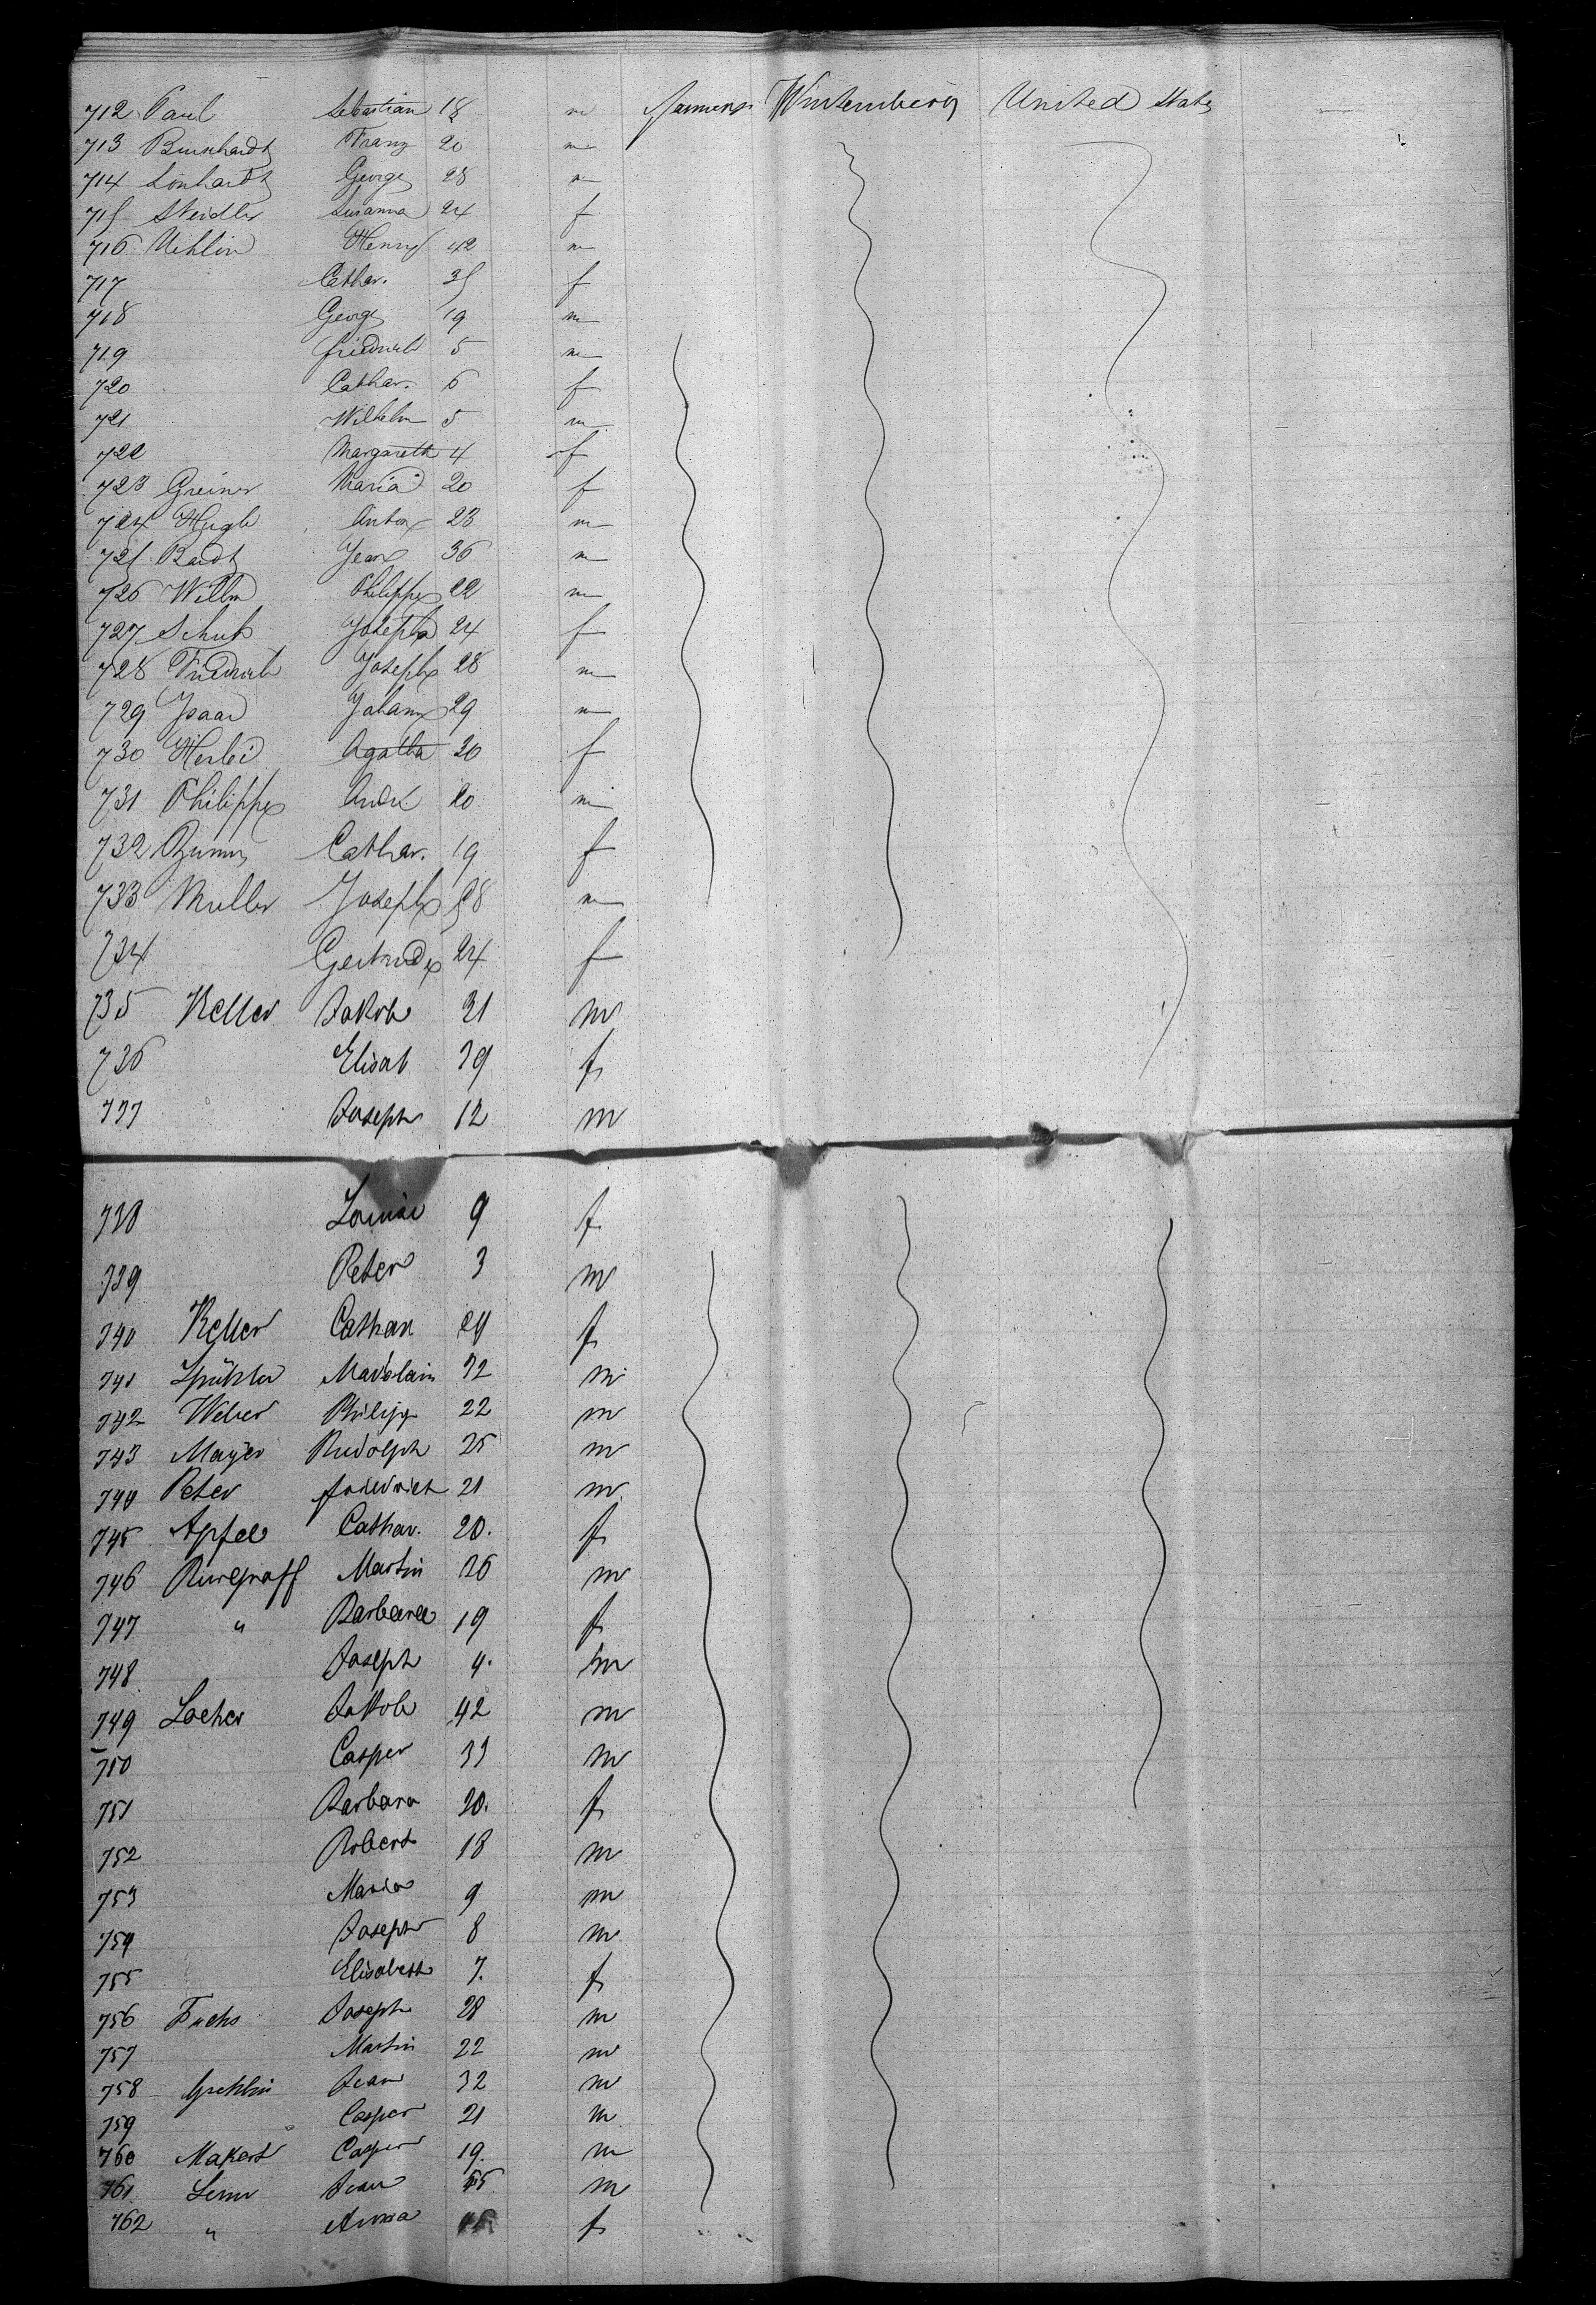 712 Paul Sebastian 18 m Wurtemberg United States
713 Burkhardt Franz 20 m
714 Lonhardt George 28 m
715 Steidler Susanna 24 f
716 Uehlin Henry 42 m
717 Cathar. 35 f
718 George 19 m
719 Friedrich 5 m
720 Cathar. 6 f
721 Wilhelm 5 m
722 Margareth 4 f
723 Greiner Maria 20 f
724 Anton 23 m
725 Jean 36 m
726 Willm Philippe 22 m
727 Josepha 24 f
728 Friedrich Joseph 28 m
729 Johann 29 m
730 Agatha 20 f
731 Philippe André 20 m
732 Cathar. 19 f
733 Muller Joseph 28 m
734 Gertrude 24 f
735 Keller Jakob 31 m
736 Elisab 39 f
737 Joseph 12 m
738 Louise 9 f
739 Peter 3 m
740 Keller Cathar 24 f
741 Madelain 32 m
742 Weber Philipp 22 m
743 Mayer Rudolph 25 m
744 Peter Friedrich 21 m
745 Apfel Cathar. 20. f
746 Burgraff Martin 26 m
747 " Barbara 19 f
748 Joseph 4. m
749 Locher Jakob 42 m
750 Casper 33 m
751 Barbara 20. f
752 Robert 18 m
753 Maria 9 m
754 Joseph 8 m
755 Elisabeth 7. f
756 Fuchs Joseph 28 m
757 Martin 22 m
758 Jean 32 m
759 Casper 21 m
760 Makart Casper 19. m
761 Jean m
762 " Anna f